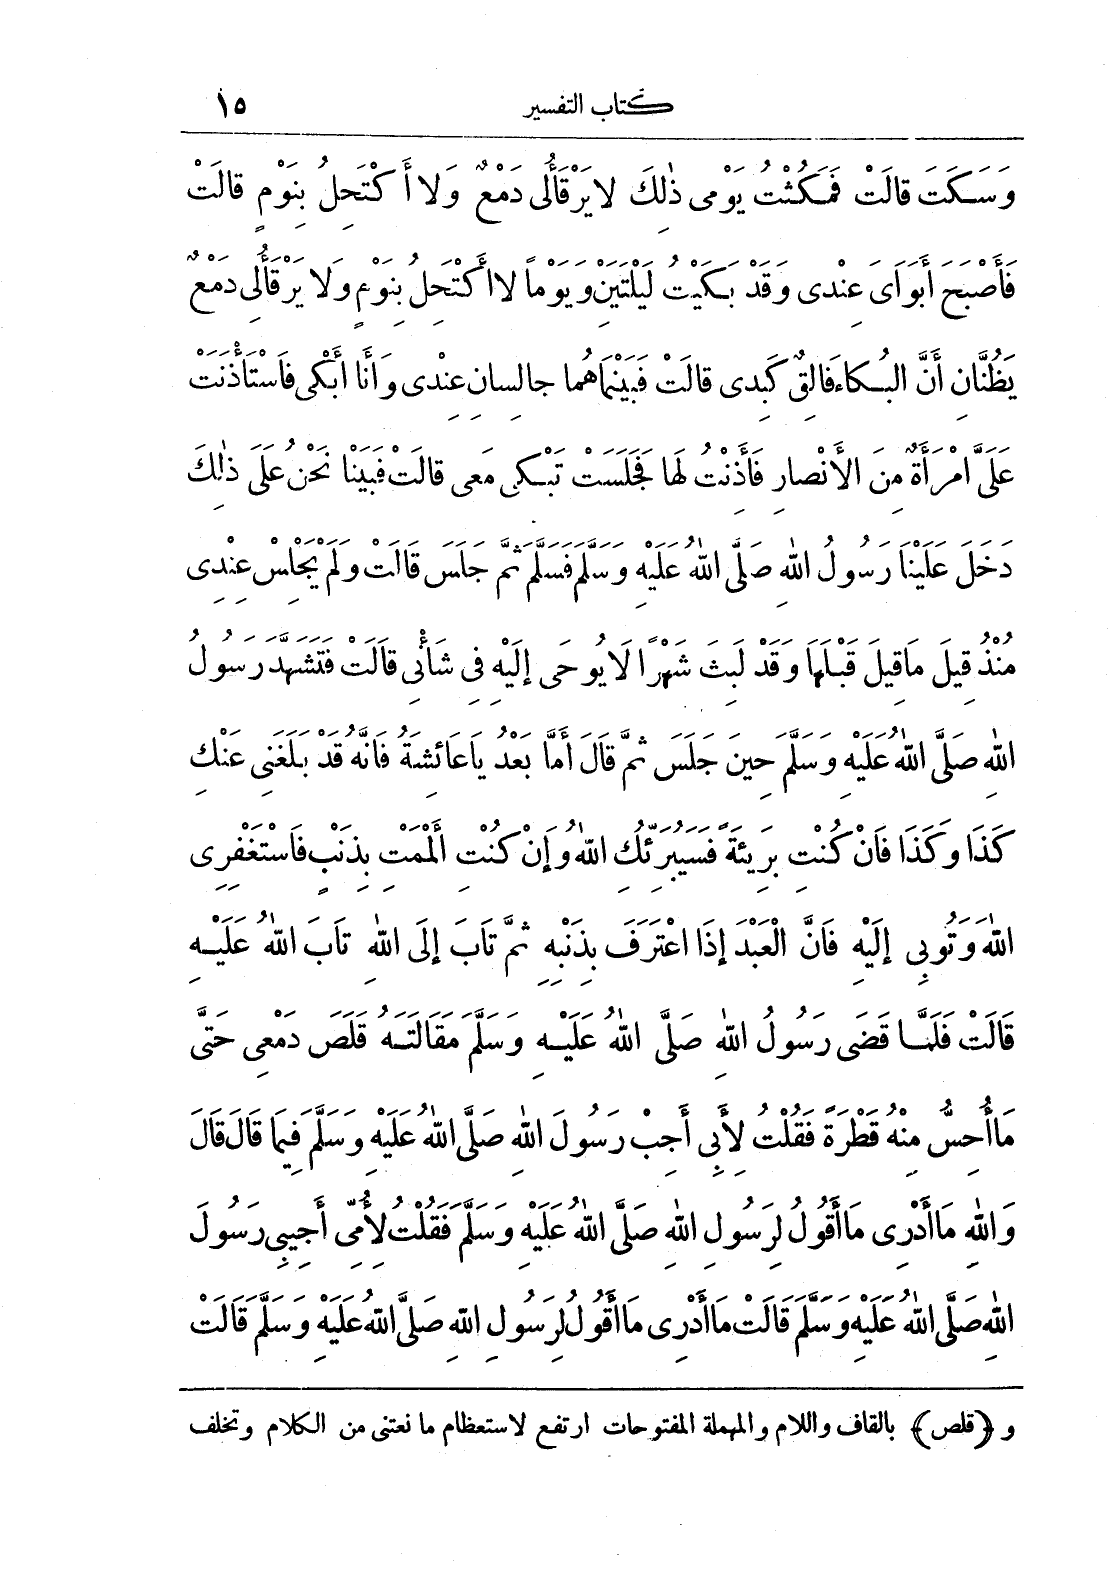 كتاب التفسير ١٥
وَسَكَتَ قالَتْ فَمَكُثْتُ يَوْمِى ذٰلِكَ لا يَرْقَأُ لِى دَمْعٌ وَلا أَكْتَحِلُ بِنَوْمٍ قالَتْ
فَأَصْبَحَ أَبَوَاىَ عِنْدِى وَقَدْ بَكَيْتُ لَيْلَتَيْنِ وَيَوْماً لا أَكْتَحِلُ بِنَوْمٍ وَلا يَرْقَأُ لِى دَمْعٌ
يَظُنَّانِ أَنَّ البُكاءَ فَالِقٌ كَبِدِى قالَتْ فَبَيْنَما هُما جالِسانِ عِنْدِى وَأَنَا أَبْكِى فَاسْتَأْذَنَتْ
عَلَىَّ امْرَأَةٌ مِنَ الأَنْصارِ فَأَذِنْتُ لَها فَجَلَسَتْ تَبْكِى مَعِى قالَتْ فَبَيْنا نَحْنُ عَلَى ذٰلِكَ
دَخَلَ عَلَيْنَا رَسُولُ اللهِ صَلَّى اللهُ عَلَيْهِ وَسَلَّمَ فَسَلَّمَ ثُمَّ جَلَسَ قَالَتْ وَلَمْ يَجْلِسْ عِنْدِى
مُنْذُ قِيلَ مَا قِيلَ قَبْلَهَا وَقَدْ لَبِثَ شَهْرًا لَا يُوحَى إِلَيْهِ فِى شَأْنِى قَالَتْ فَتَشَهَّدَ رَسُولُ
اللهِ صَلَّى اللهُ عَلَيْهِ وَسَلَّمَ حِينَ جَلَسَ ثُمَّ قَالَ أَمَّا بَعْدُ يَا عَائِشَةُ فَانَّهُ قَدْ بَلَغَنِى عَنْكِ
كَذَا وَكَذَا فَانْ كُنْتِ بَرِيئَةً فَسَيُبَرِّئُكِ اللهُ وَإِنْ كُنْتِ أَلْمَمْتِ بِذَنْبٍ فَاسْتَغْفِرِى
اللهَ وَتُوبِى إِلَيْهِ فَانَّ الْعَبْدَ إِذَا اعْتَرَفَ بِذَنْبِهِ ثُمَّ تَابَ إِلَى اللهِ تَابَ اللهُ عَلَيْهِ
قَالَتْ فَلَمَّا قَضَى رَسُولُ اللهِ صَلَّى اللهُ عَلَيْهِ وَسَلَّمَ مَقَالَتَهُ قَلَصَ دَمْعِى حَتَّى
مَا أُحِسُّ مِنْهُ قَطْرَةً فَقُلْتُ لِأَبِى أَجِبْ رَسُولَ اللهِ صَلَّى اللهُ عَلَيْهِ وَسَلَّمَ فِيمَا قَالَ قَالَ
وَاللهِ مَا أَدْرِى مَا أَقُولُ لِرَسُولِ اللهِ صَلَّى اللهُ عَلَيْهِ وَسَلَّمَ فَقُلْتُ لِأُمِّى أَجِيبِى رَسُولَ
اللهِ صَلَّى اللهُ عَلَيْهِ وَسَلَّمَ قَالَتْ مَا أَدْرِى مَا أَقُولُ لِرَسُولِ اللهِ صَلَّى اللهُ عَلَيْهِ وَسَلَّمَ قَالَتْ
و ﴿قلص﴾ بالقاف واللام والمهملة المفتوحات ارتفع لاستعظام ما نعتنى من الكلام وتخلف